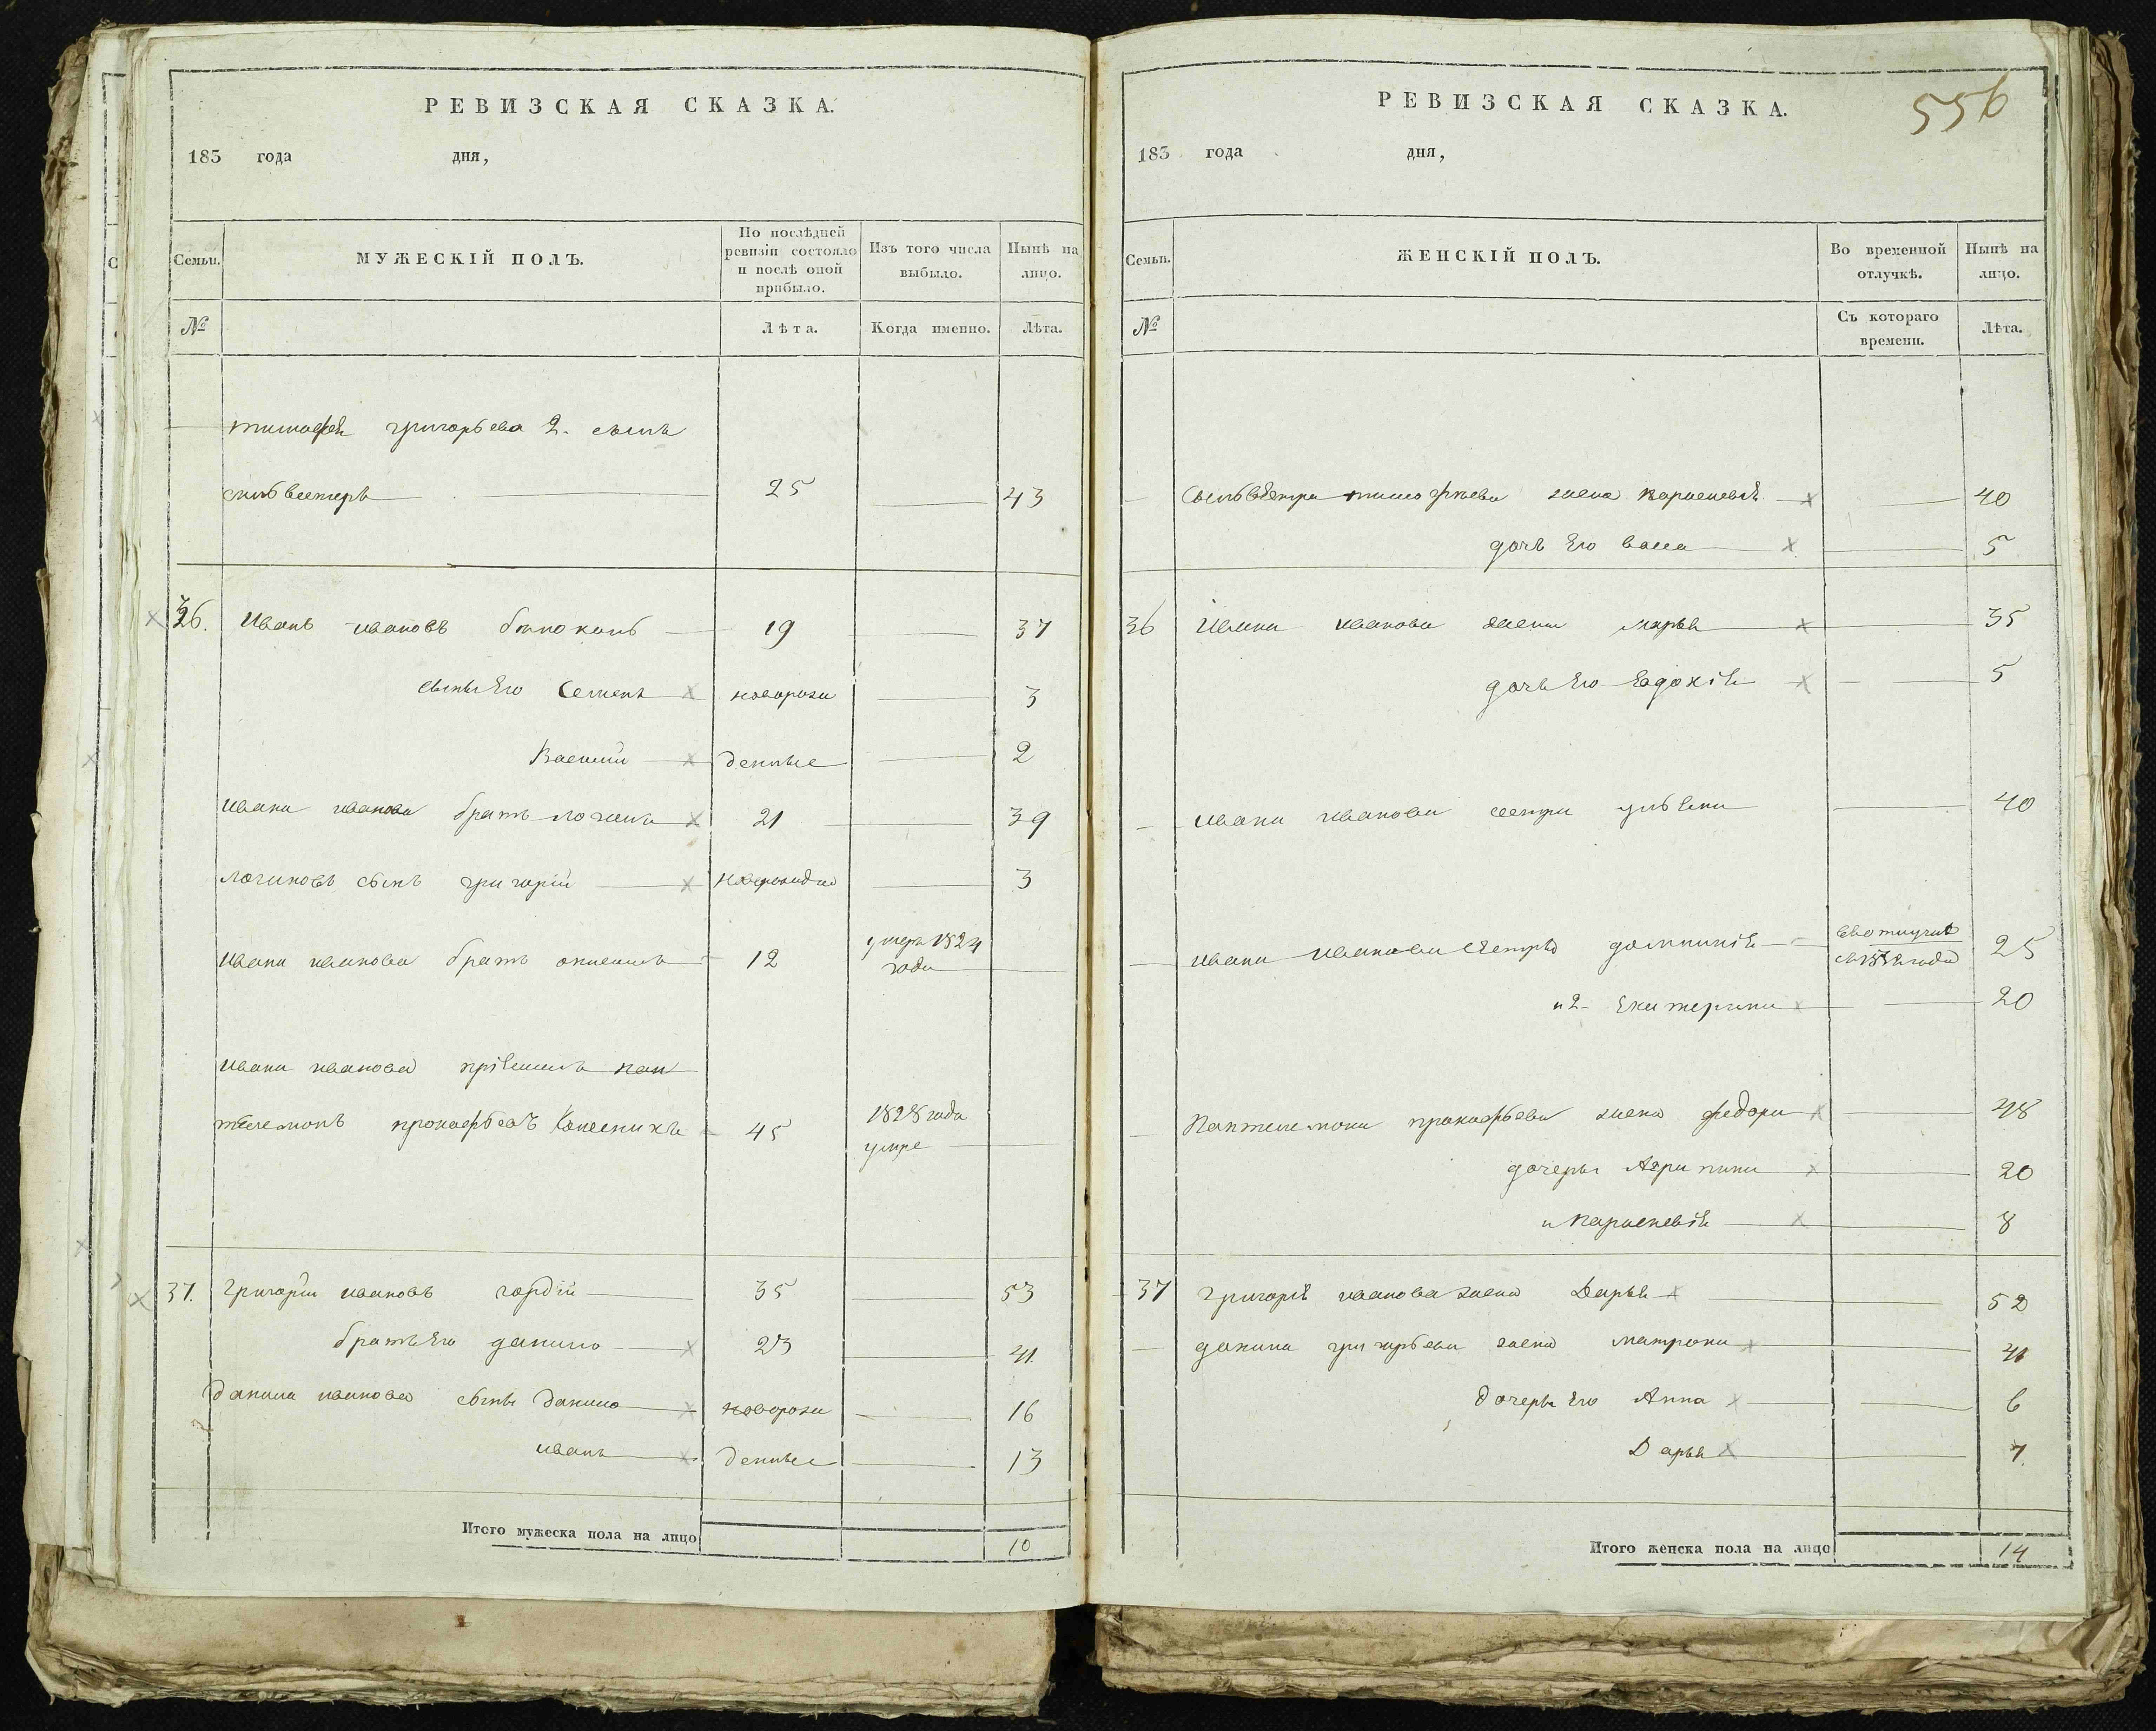 РЕВИЗСКАЯ СКАЗКА.
183 года дня,
Семьи. МУЖЕСКІЙ ПОЛЪ. По послѣдней ревизіи состояло и послѣ оной прибыло. Изъ того числа выбыло. Нынѣ на лицо.
№ Лѣта. Когда именно. Лѣта.
тимофея григорьева 2. сынъ
сильвестеръ 25 43
36. Иванъ ивановъ 19 37
сынъ Его Семенъ новорож 3
Василий денные 2
ивана иванова братъ логинъ 21 39
логиновъ сынъ григорій 3
ивана иванова братъ анисимъ 12 умеръ 1824 года
ивана иванова пан
телемонъ прокофьевъ 45 1828 года умре
37. григорій ивановъ гордій 35 53
братъ Его данило 23 41
данила иванова сынъ данило новорож 16
иванъ денные 13
Итого мужеска пола на лицо 10
РЕВИЗСКАЯ СКАЗКА. 556
183 года дня,
Семьи. ЖЕНСКІЙ ПОЛЪ. Во временной отлучкѣ. Нынѣ на лицо.
№ Съ котораго времени. Лѣта.
жена 40
дочь Его 5
36 Ивана иванова жена марья 35
дочь Его Евдокія 5
ивана иванова сестра ульяна 40
ивана иванова сестра 25
и 2- Екатерина 20
Пантелемона прокофьева жена федора 48
дочеры Агрипина 20
и 8
37 григорія иванова жена Дарья 52
данила григорьева жена матрона 41
дочеры Его Анна 6
Дарья 7.
Итого женска пола на лицо 14